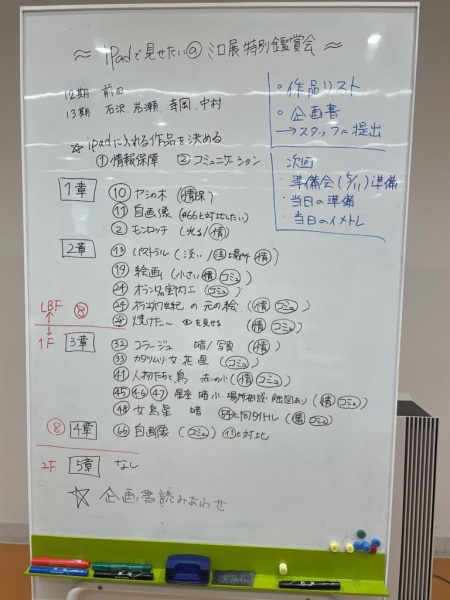 ～ iPadで見せたい@ミロ展特別鑑賞会 ～
12期 前田
13期 石沢、岩瀬、寺岡、中村
☆ iPadに入れる作品を決める
①情報保障 ②コミュニケーション
・作品リスト
・企画書
→スタッフに提出
次回
・準備会(5/11)準備
・当日の準備
・当日のイメトレ
1章 ⑩ ヤシの木 (情保)
⑪ 自画像 (#66と対比したい)
② モンロッチ (光る/情)
2章 ⑬ パストラル (淡い/ 情)
⑲ 絵画 (小さい 情 コミュ)
㉔ オランダの室内Ⅰ (コミュ)
㉔ の元の絵 (情 コミュ)
焼けた〜 を見せる (情 コミュ)
LBF ⑧
1F 3章 ㉜ コラージュ 暗/写真 (情)
㉝ カタツムリ女花星 (コミュ)
㊶ 人物たちと鳥 (情 コミュ)
㊺ ㊻ ㊼ 星座 暗 小 場所相談 (情 コミュ)
㊽ 女鳥星 暗 と同タイトル (情 コミュ)
⑧ 4章 66 自画像 (コミュ) ⑪と対比
2F 5章 なし
☆ 企画書読みあわせ